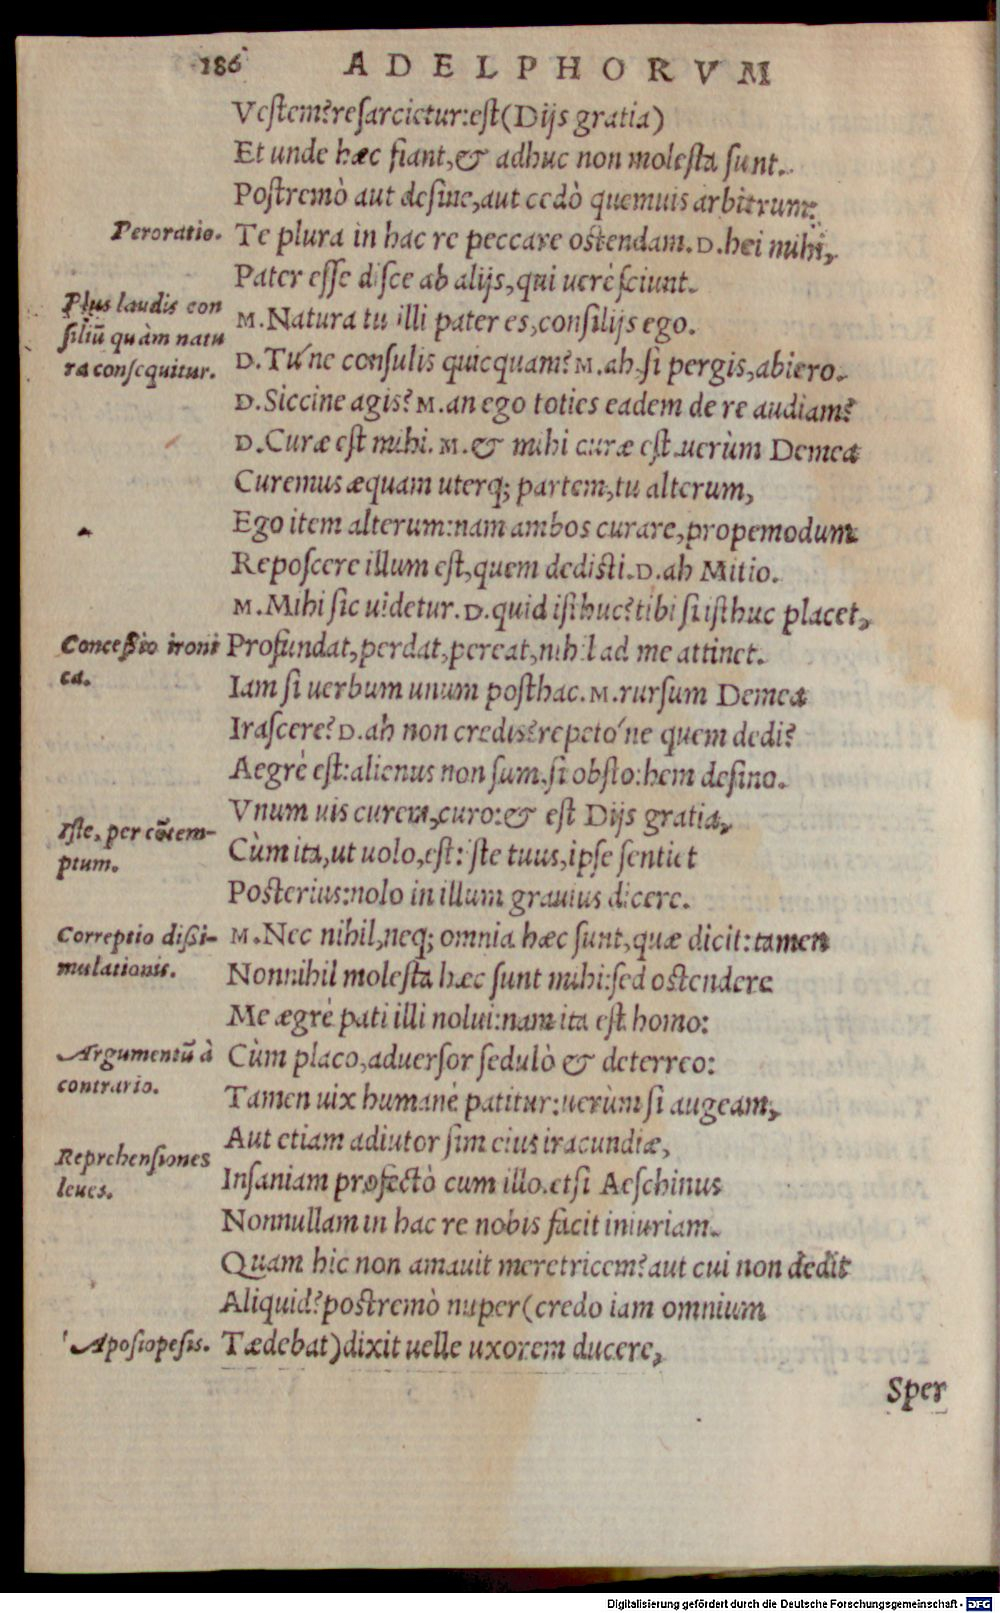 186 ADELPHORVM
Vestem? resarcietur: est (Dijs gratia)
Et unde hæc fiant, & adhuc non molesta sunt.
Postremò aut desine, aut cedò quemuis arbitrum:
Peroratio.
Te plura in hac re peccare ostendam. D. hei mihi,
Pater esse disce ab alijs, qui uerè sciunt.
Plus laudis con
siliũ quàm natu
ra consequitur.
M. Natura tu illi pater es, consilijs ego.
D. Tú ne consulis quicquam? M. ah, si pergis, abiero.
D. Siccine agis? M. an ego toties eadem de re audiam?
D. Curæ est mihi. M. & mihi curæ est. uerùm Demea
Curemus æquam uterq; partem, tu alterum,
Ego item alterum: nam ambos curare, propemodum
Reposcere illum est, quem dedisti. D. ah Mitio.
M. Mihi sic uidetur. D. quid isthuc? tibi si isthuc placet,
Concessio ironi
ca.
Profundat, perdat, pereat, nihil ad me attinet.
Iam si uerbum unum posthac. M. rursum Demea
Irascere? D. ah non credis? repetó ne quem dedi?
Aegrè est: alienus non sum, si obsto: hem desino.
Vnum uis curem, curo: & est Dijs gratia,
Iste, per cõtem-
ptum.
Cùm ita, ut uolo, est: iste tuus, ipse sentiet
Posterius: nolo in illum grauius dicere.
Correptio dißi-
mulationis.
M. Nec nihil, neq; omnia hæc sunt, quæ dicit: tamen
Nonnihil molesta hæc sunt mihi: sed ostendere
Me ægrè pati illi nolui: nam ita est homo:
Argumentũ à
contrario.
Cùm placo, aduersor sedulò & deterreo:
Tamen uix humanè patitur: uerùm si augeam,
Aut etiam adiutor sim eius iracundiæ,
Reprehensiones
leues.
Insaniam profectò cum illo. etsi Aeschinus
Nonnullam in hac re nobis facit iniuriam.
Quam hic non amauit meretricem? aut cui non dedit
Aliquid? postremò nuper (credo iam omnium
Aposiopesis.
Tædebat) dixit uelle uxorem ducere,
Sper
Digitalisierung gefördert durch die Deutsche Forschungsgemeinschaft - DFG